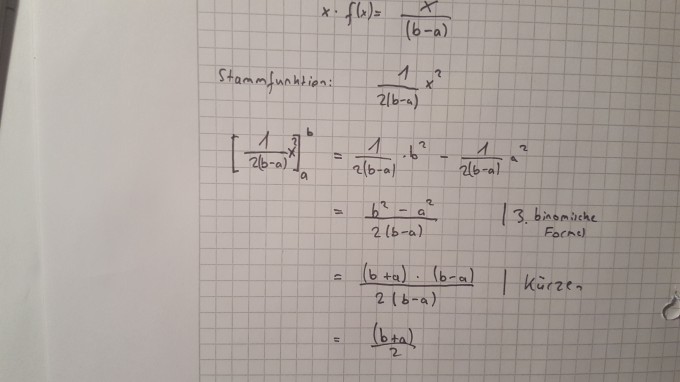 x · f(x) = x/(b-a)
Stammfunktion: 1/2(b-a) x²
[1/2(b-a) x²]ₐᵇ = 1/2(b-a) · b² - 1/2(b-a) a²
= b² - a²/2(b-a) | 3. binomische Formel
= (b+a) · (b-a)/2(b-a) | Kürzen
= (b+a)/2